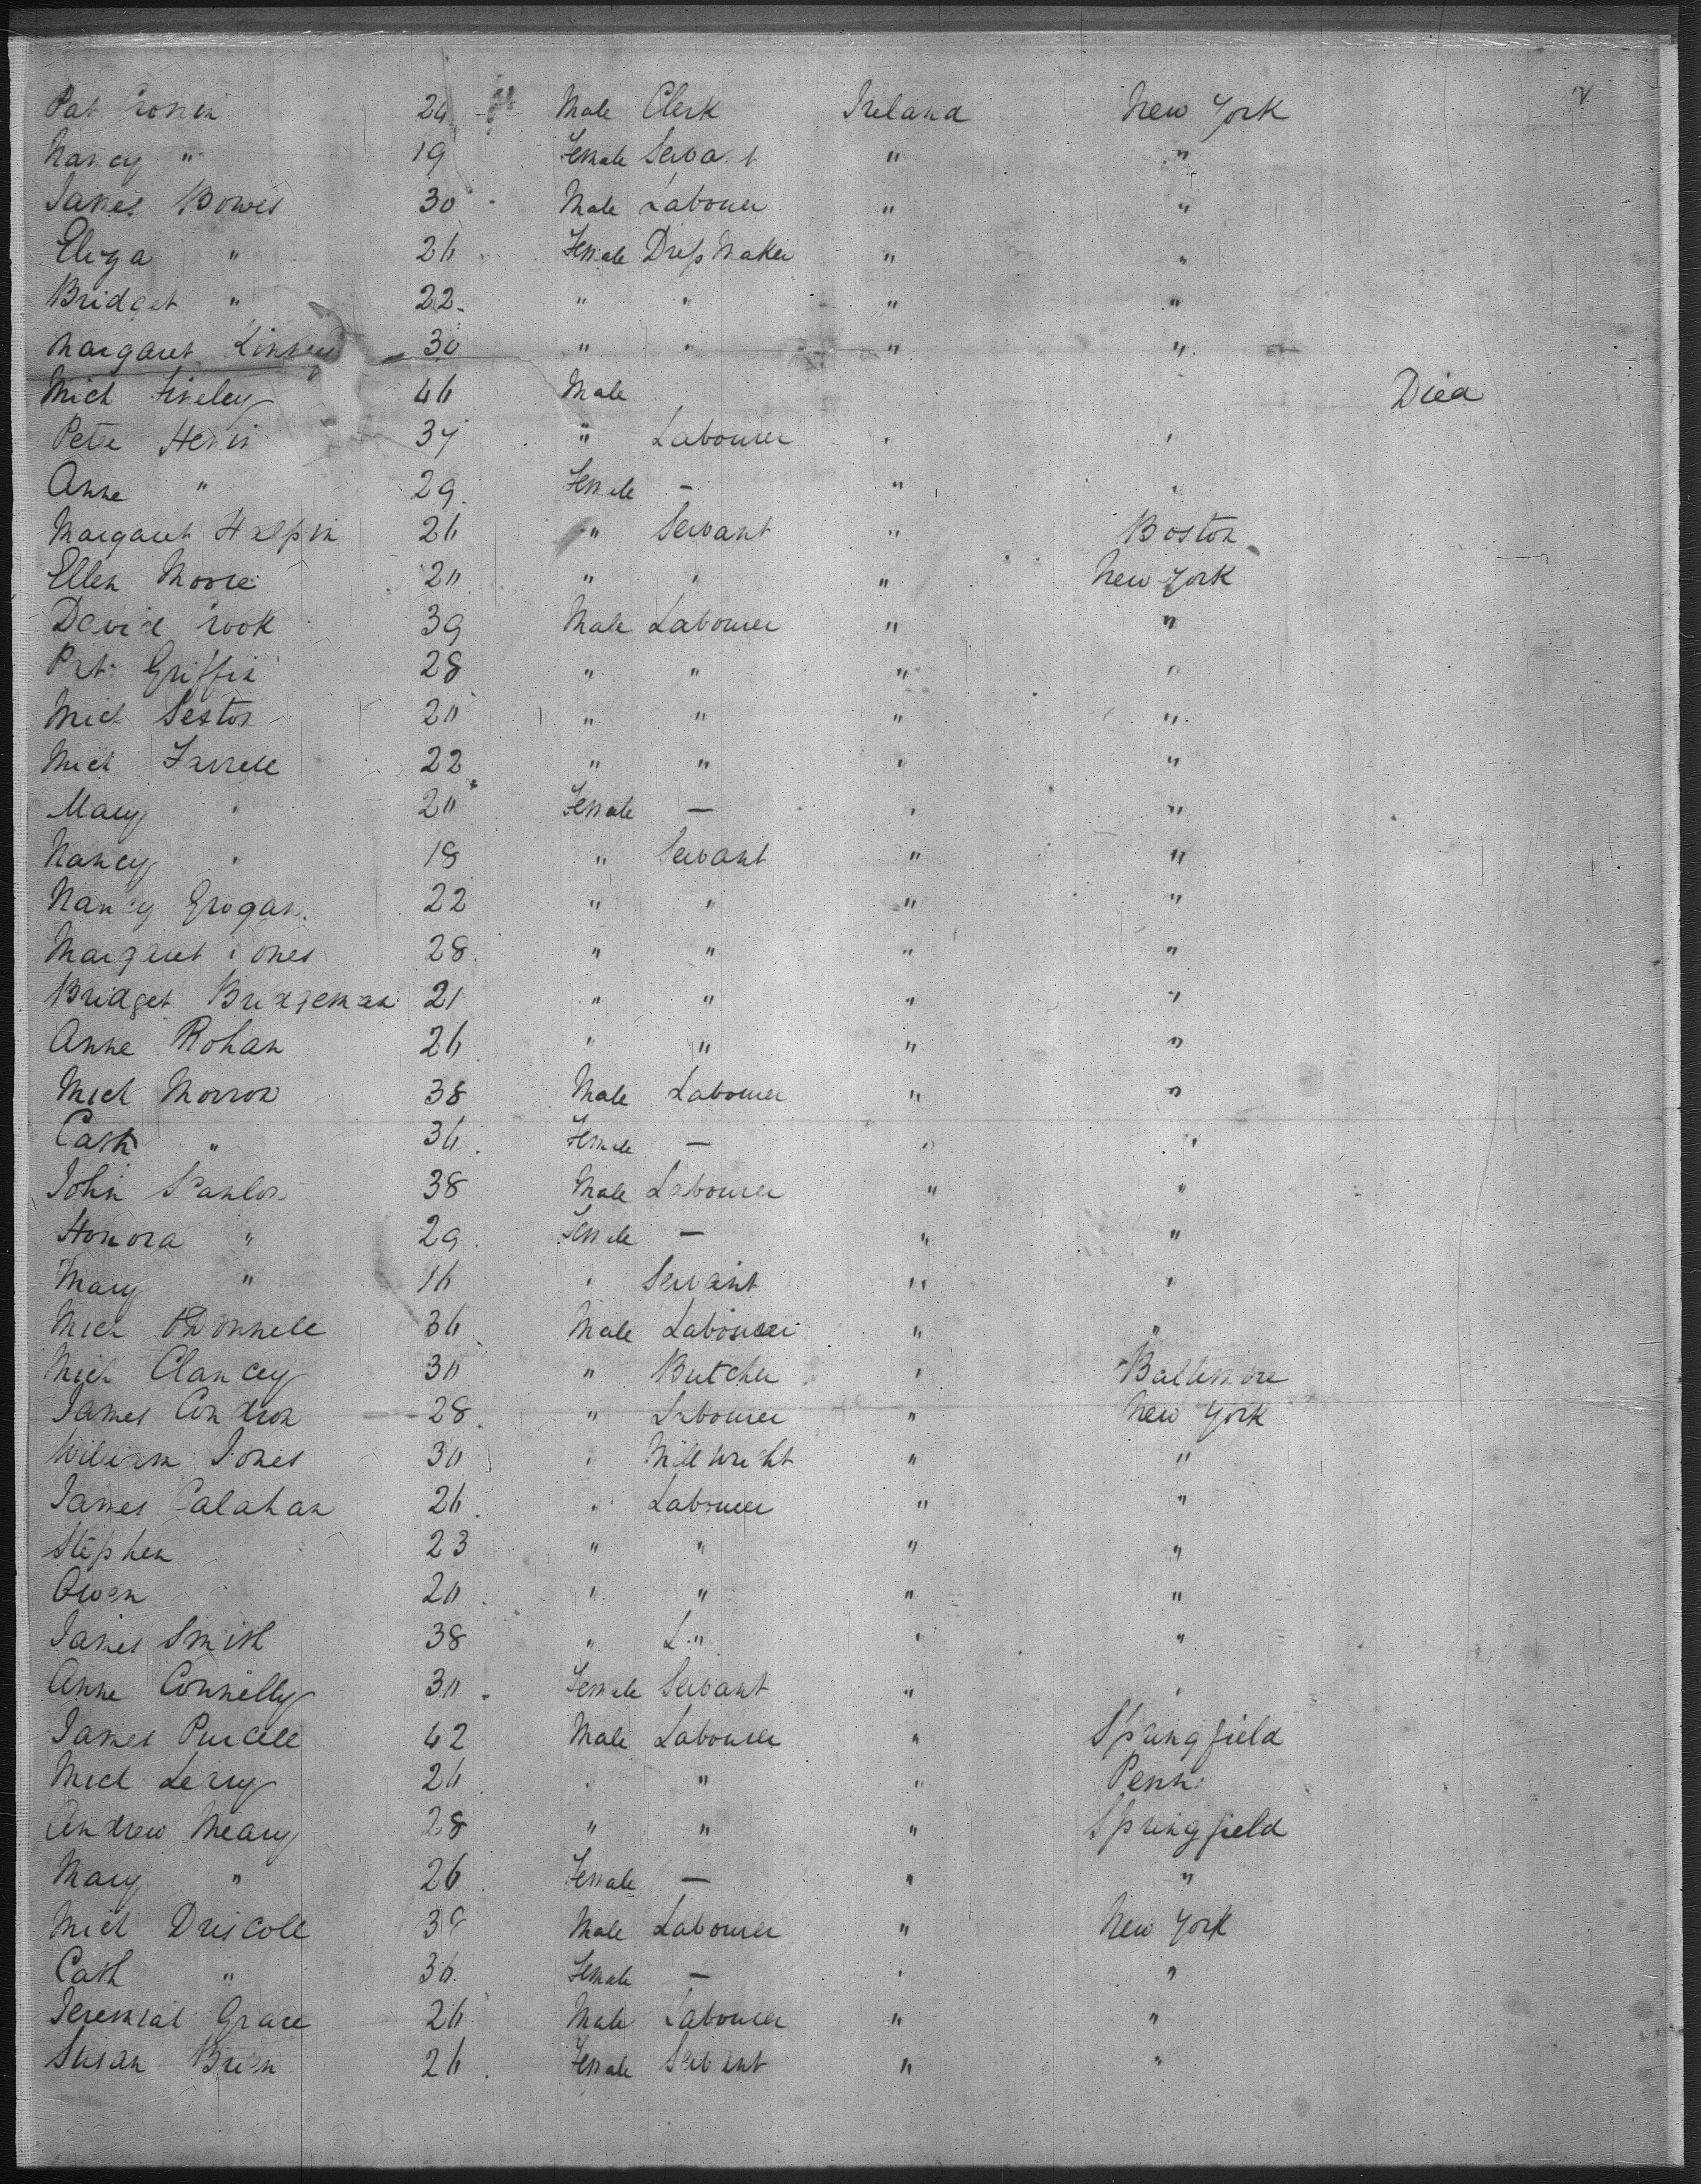 Pat Cronin 24 Male Clerk Ireland New York
Nancy " 19 Female Servant " "
James Bowes 30 Male Labourer " "
Eliza " 26 Female Dress Maker " "
Bridget " 22 " " " "
Margaret 30 " " " "
Mich 46 Male Died
Peter 37 " Labourer " "
Anne " 29 Female - " "
Margaret Halpin 26 " Servant " Boston
Ellen Moore 20 " " " New York
David Cook 39 Male Labourer " "
Pat Griffin 28 " " " "
Mich Sexton 20 " " " "
Mich Farrell 22 " " " "
Mary " 20 Female — " "
Nancy " 18 " Servant " "
Nancy Grogan 22 " " " "
Margaret Jones 28 " " " "
Bridget Bridgeman 21 " " " "
Anne Rohan 26 " " " "
Mich Morron 38 Male Labourer " "
Cath " 36 Female — " "
John Scanlon 38 Male Labourer " "
Honora " 29 Female — " "
Mary " 16 " Servant " "
Mich O'Donnell 36 Male Labourer " "
Mich Clancey 30 " Butcher " Baltimore
James Condron 28 " Labourer " New York
William Jones 30 " Millwright " "
James Calahan 26 " Labourer " "
Stephen 23 " " " "
Owen 20 " " " "
James Smith 38 " L " " "
Anne Connelly 30 Female Servant " "
James Purcell 42 Male Labourer " Springfield
Mich Leary 26 " " " Penn
Andrew Meary 28 " " " Springfield
Mary " 26 Female — " "
Mich Driscoll 38 Male Labourer " New York
Cath " 36 Female — " "
Jeremiah Grace 26 Male Labourer " "
Susan Brien 26 Female Servant " "